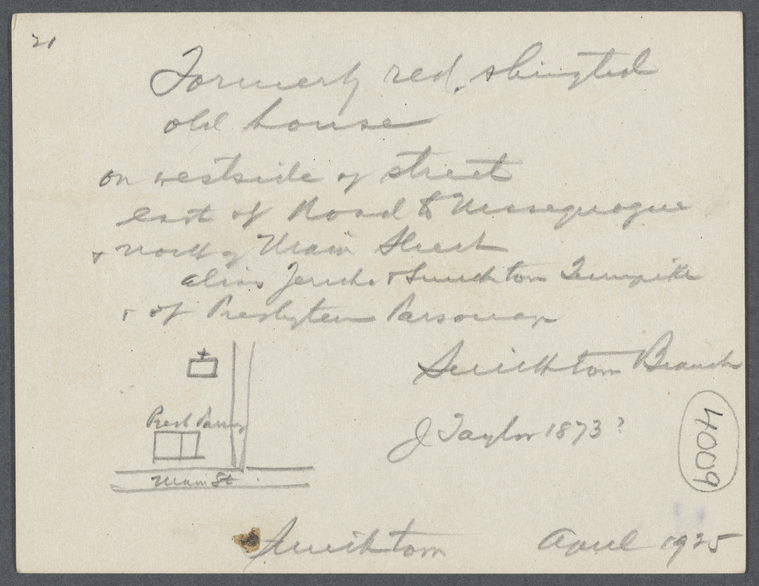 21
Formerly red, shingled
old house
on westside of street
east of Road to Nissequogue
& north of Main Street
alias Jericho & Smithtown Turnpike
& of Presbyterian Parsonage
Smithtown Branch
Presb Parsng
J Taylor 1873?
4009
Main St
Smithtown April 1925